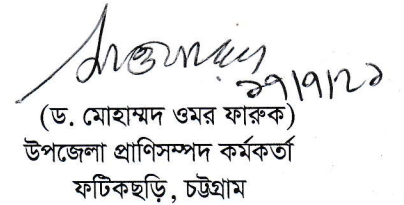 ২৭/৭/২১
(ড. মোহাম্মদ ওমর ফারুক)
উপজেলা প্রাণিসম্পদ কর্মকর্তা
ফটিকছড়ি, চট্টগ্রাম